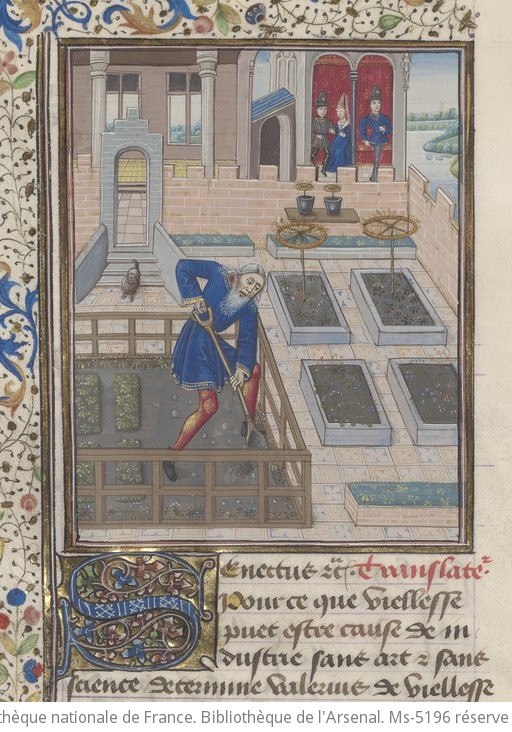 Senectus ⁊c̃. Translate᷑.
Pour ce que viellesse
puet estre cause de in
dustrie sans art ⁊ sans
science determine valerius de viellesse
thèque nationale de France. Bibliothèque de l'Arsenal. Ms-5196 réserve